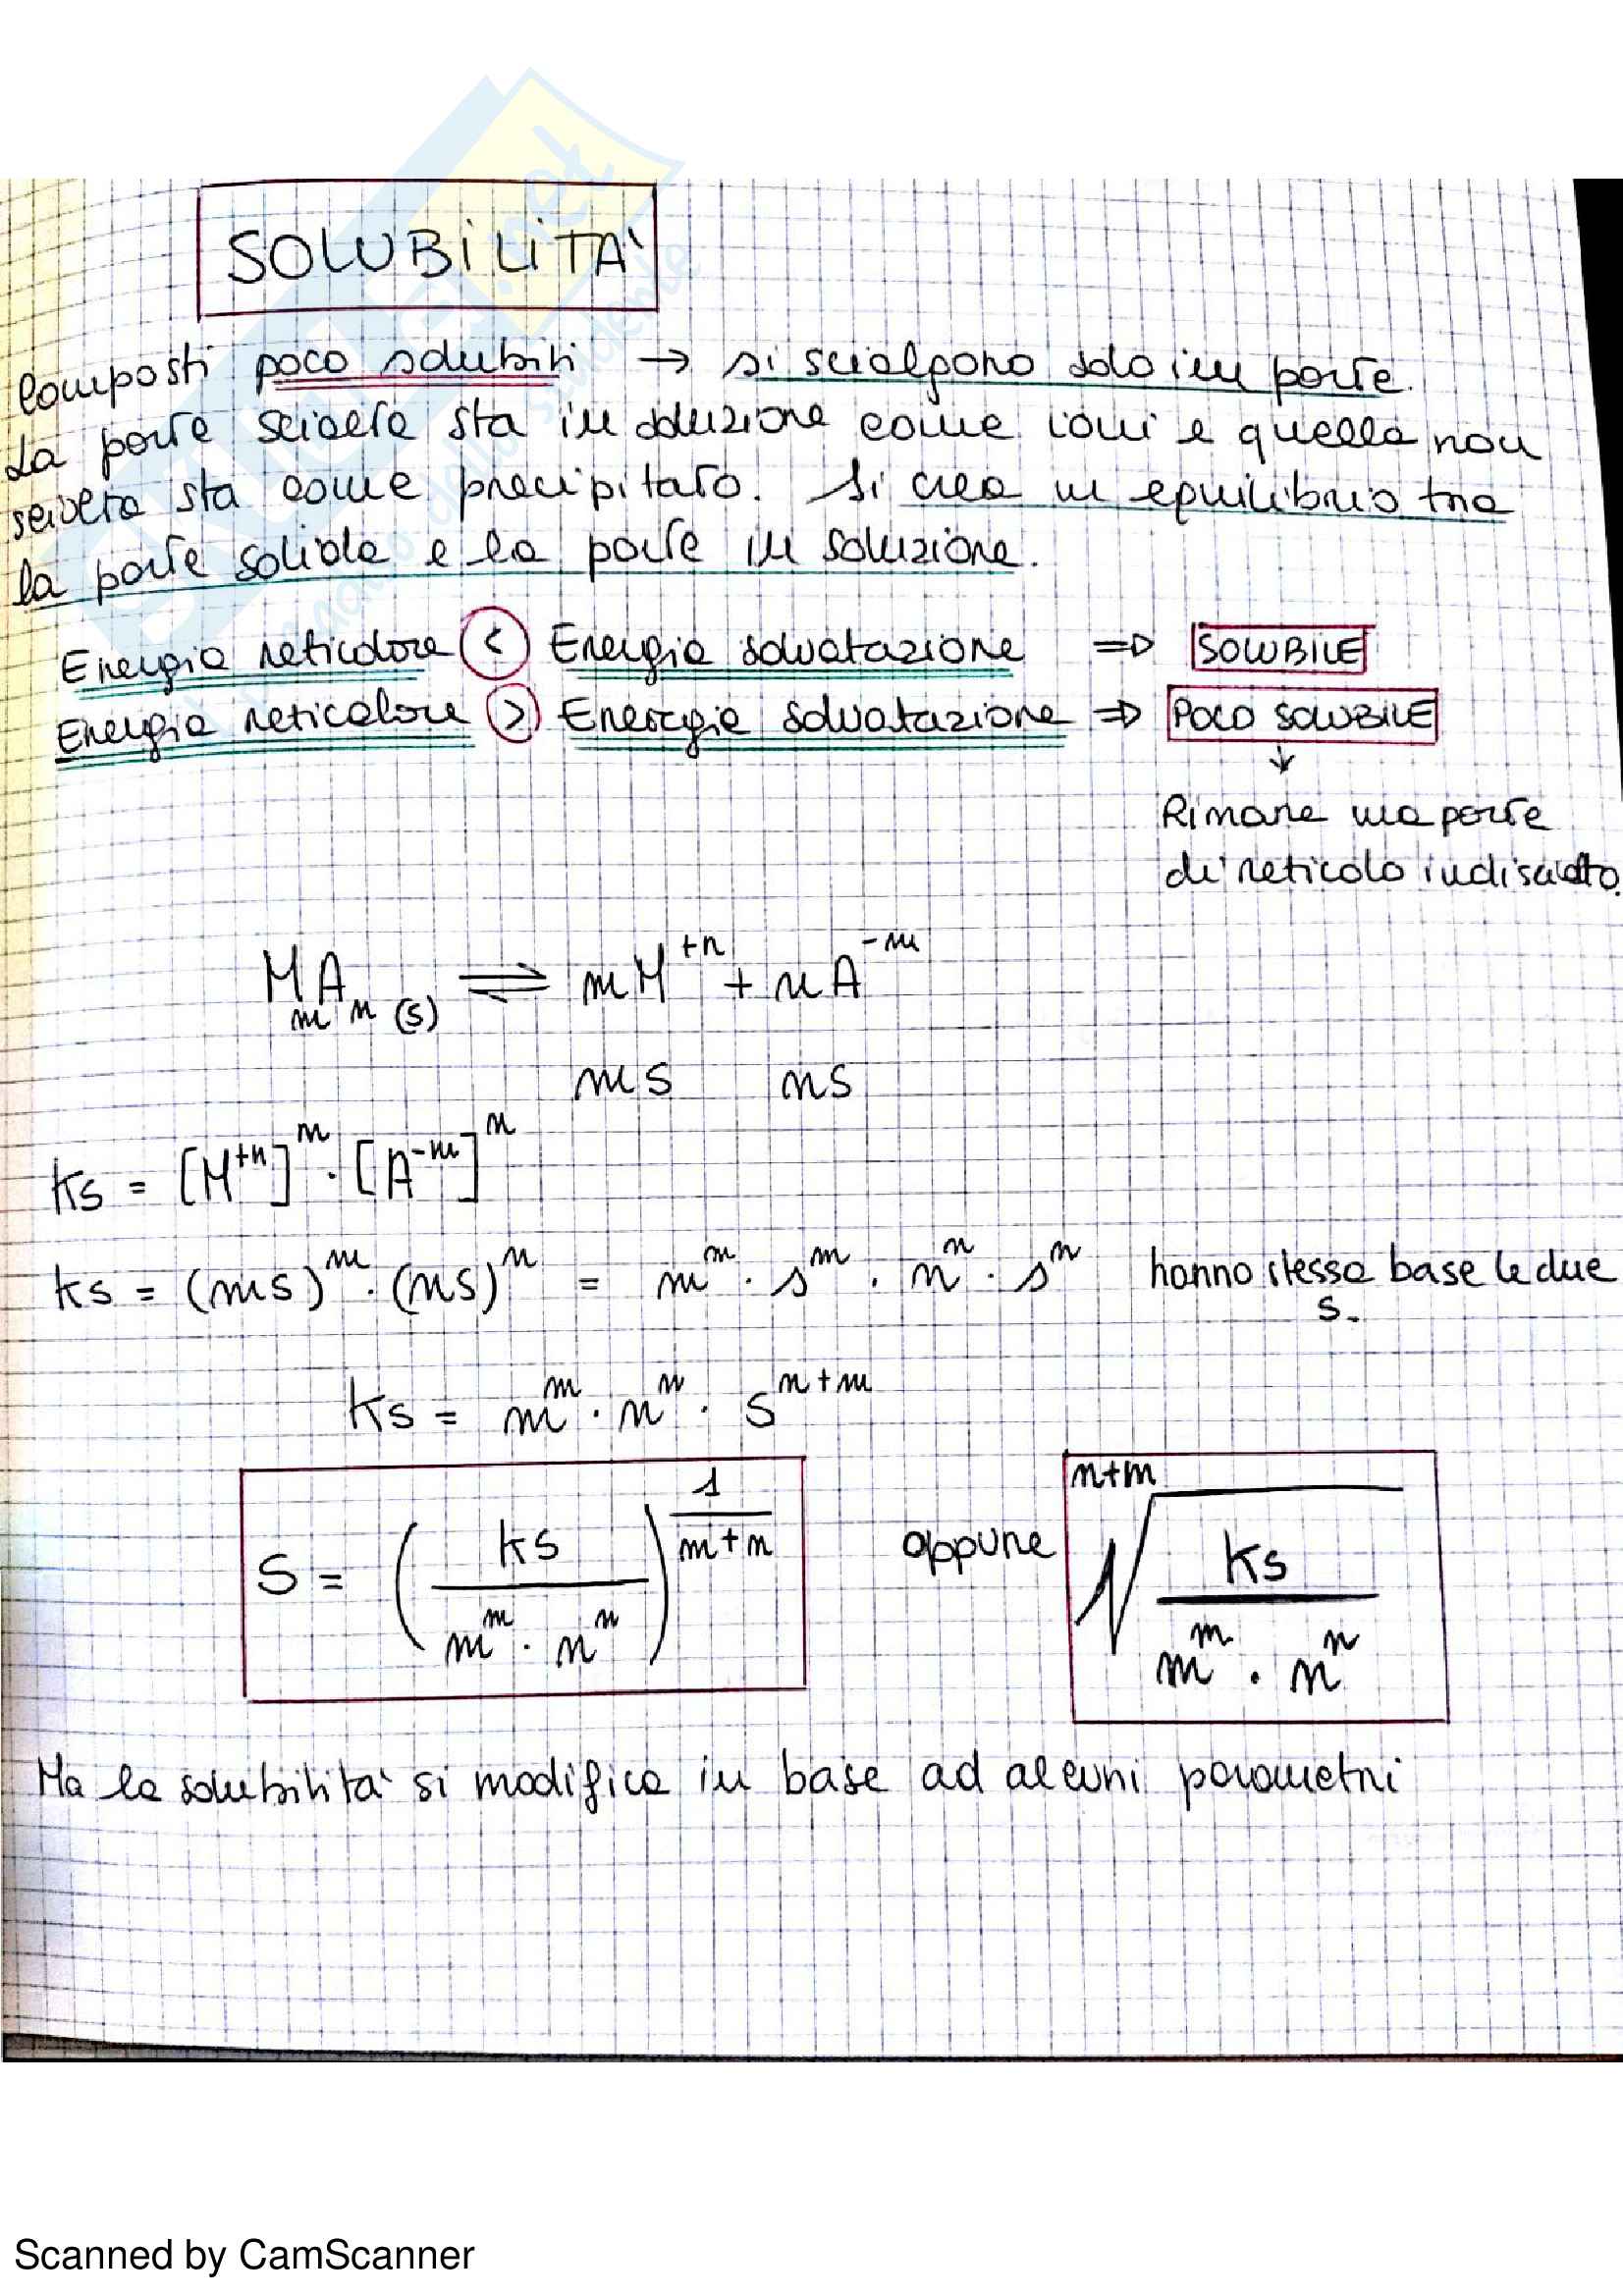 SOLUBILITA'
Composti poco solubili → si sciolgono solo in parte.
La parte sciolta sta in soluzione come ioni e quella non
sciolta sta come precipitato. Si crea un equilibrio tra
la parte solida e la parte in soluzione.
Energia reticolare < Energia solvatazione ⇒ SOLUBILE
Energia reticolare > Energia solvatazione ⇒ POCO SOLUBILE
↓
Rimane una parte
di reticolo indisciolto.
MmAn (s) ⇌ mM⁺ⁿ + nA⁻ᵐ
ms ns
Ks = [M⁺ⁿ]ᵐ · [A⁻ᵐ]ⁿ
Ks = (ms)ᵐ · (ns)ⁿ = mᵐ · sᵐ · nⁿ · sⁿ hanno stessa base le due
s.
Ks = mᵐ · nⁿ · sⁿ⁺ᵐ
S = (Ks / mᵐ · nⁿ)^(1/(m+n)) oppure ⁿ⁺ᵐ√(Ks / mᵐ · nⁿ)
Ma la solubilità si modifica in base ad alcuni parametri
Scanned by CamScanner